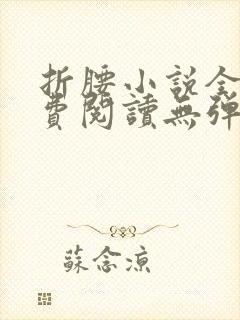 折腰小說全
費閱讀無彈
蘇念涼